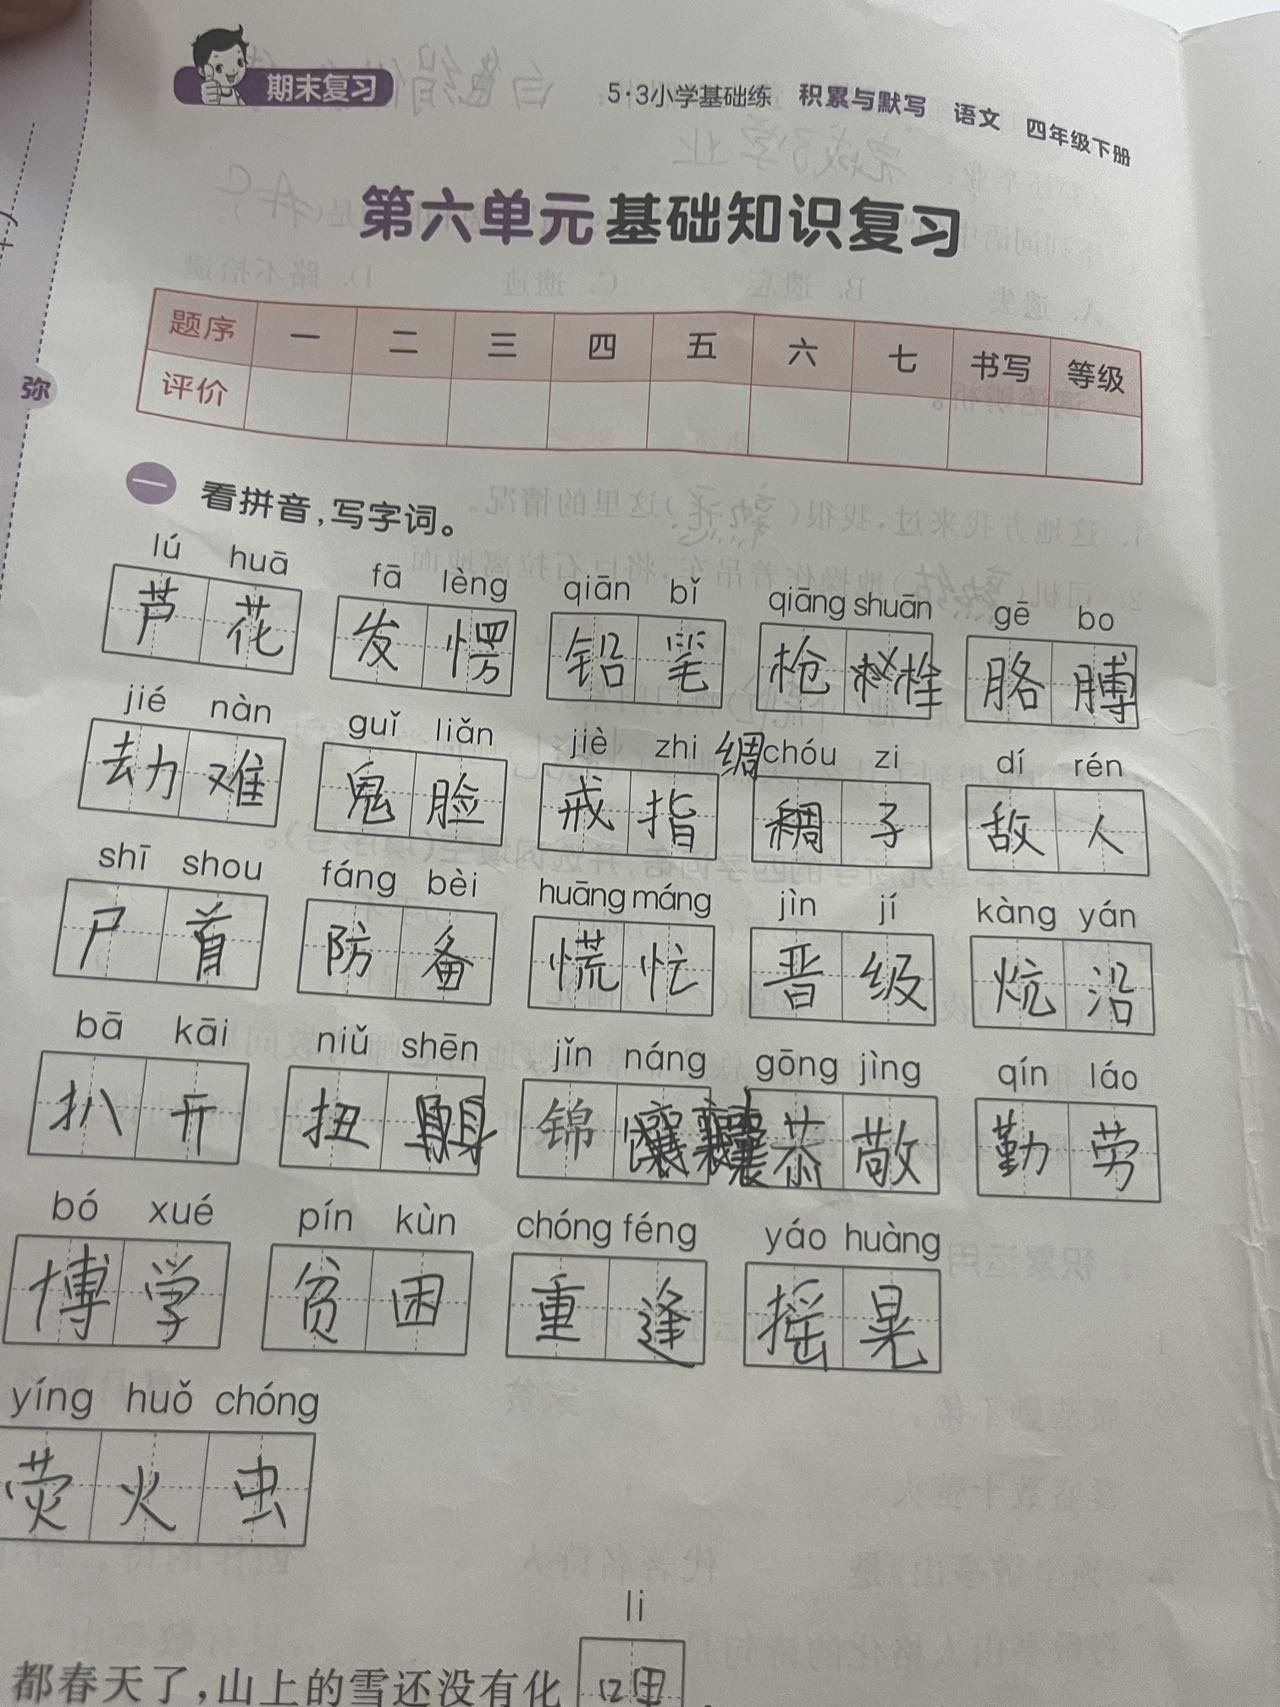 期末复习 5·3小学基础练 积累与默写 语文 四年级下册
第六单元 基础知识复习
题序 一 二 三 四 五 六 七 书写 等级
评价
弥
一 看拼音，写字词。
lú huā fā lèng qiān bǐ qiāng shuān gē bo
芦花 发愣 铅笔 枪栓 胳膊
jié nàn guǐ liǎn jiè zhi chóu zi dí rén
劫难 鬼脸 戒指 绸 稠子 敌人
shī shou fáng bèi huāng máng jìn jí kàng yán
尸首 防备 慌忙 晋级 炕沿
bā kāi niǔ shēn jǐn náng gōng jìng qín láo
扒开 扭 锦 恭敬 勤劳
bó xué pín kùn chóng féng yáo huàng
博学 贫困 重逢 摇晃
yíng huǒ chóng
荧火虫
li
都春天了，山上的雪还没有化 哩